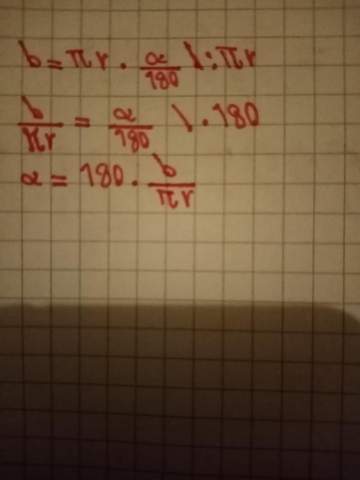 b = πr · α/180 \ : πr
b/πr = α/180 \ · 180
α = 180 · b/πr